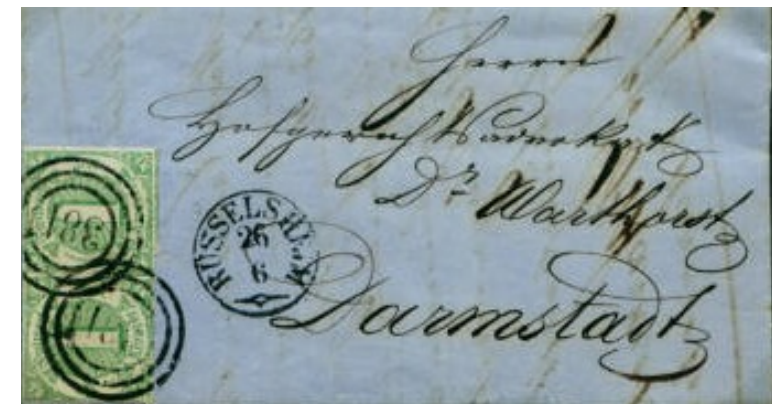 Herrn
Hofgerichtsadvokat
Dr. Warthorst
Darmstadt
RÜSSELSHEIM
26
6
381